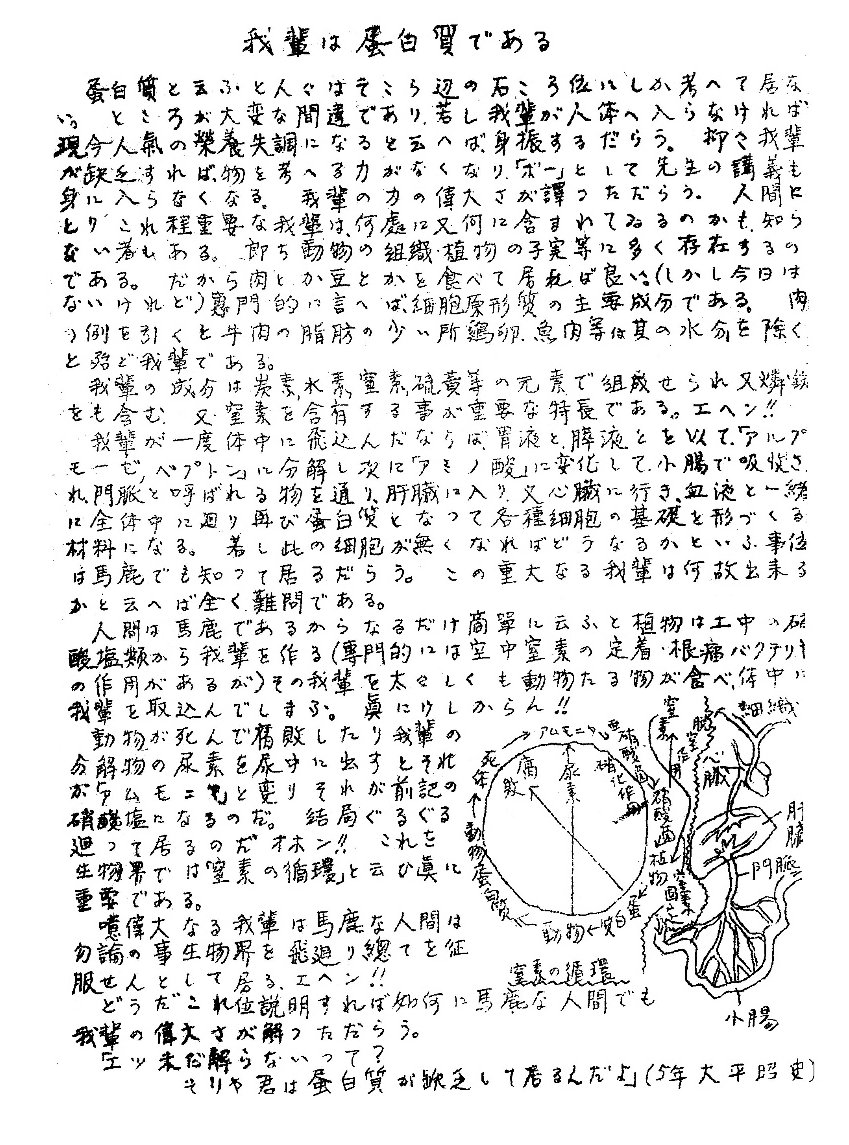 我輩は蛋白質である
蛋白質と云ふと人々はそこら辺の石ころ位にしか考へて居な
いところが大変な間違であり、若し我輩が人体へ入らなければ
現今人氣の榮養失調になると云へば、身振するだらう。抑さ我輩
が欠乏すれば、物を考へる力がなくなり、「ボー」として先生の講義も
身に入らなくなる。我輩の力の偉大さが譯つただらう。人間に
とりこれ程重要な我輩は、何處に又何に含まれてゐるのかも知ら
ない者もある。即ち動物の組織・植物の子実等に多く存在するの
である。だから肉とか豆とかを食べて居れば良い。(しかし今日は
ないけれど)專門的に言へば、細胞原形質の主要成分である。肉
の例を引くと牛肉の脂肪の少い所、鶏卵、魚肉等は其の水分を除く
と殆ど我輩である。
我輩の成分は炭素、水素、窒素、硫黄等の元素で組成せられ又燐鉄
をも含む。又窒素を含有する事が重要な特長である。エヘン!!
我輩が一度体中に飛込んだならば、胃液と、膵液とを以て、「アルプ
モーゼ、ペプトン」に分解し次に「アミノ酸」に変化して、小腸で吸收さ
れ、門脈と呼ばれる物を通り、肝臓に入り、又心臓に行き、血液と一緒
に全体中に廻り再び蛋白質となつて、各種細胞の基礎を形づくる
材料になる。若し此の細胞が無くなればどうなるかといふ事位
は馬鹿でも知つて居るだらう。この重大なる我輩は何故出来る
かと云へば全く難問である。
人間は馬鹿であるからなるだけ簡單に云ふと植物は土中の硝
酸塩類から我輩を作る(専門的には空中窒素の定着・根瘤バクテリヤ
の作用があるが)その我輩を太々しくも動物たる物が食べ、体中に
我輩を取込んでしまふ。眞にけしからん!!
動物が死んで腐敗したり我輩の
分解物の尿素を尿中に出すとそれ
が「アムモニヤ」と変り前記の
硝酸塩になるのだ。結局ぐるぐる
廻つて居るのだオホン!! これを
生物界では「窒素の循環」と云ひ眞に
重要である。
噫偉大なる我輩は馬鹿な人間は
勿論の事生物界を飛廻り總てを征
服せんとして居る、エヘン!!
どうだこれ位説明すれば如何に馬鹿な人間でも
我輩の偉大さが解つただらう。
「エッ未だ解らないって?
そりや君は蛋白質が欽乏して居るんだよ」(5年 大平昭史)
アムモニヤ
亜硝酸菌
硝化作用
硝酸菌
植物
蛋白質
動物
動物蛋白質
死体
腐敗
尿素
窒素の循環
細織
心臓
肝臓
門脈
小腸